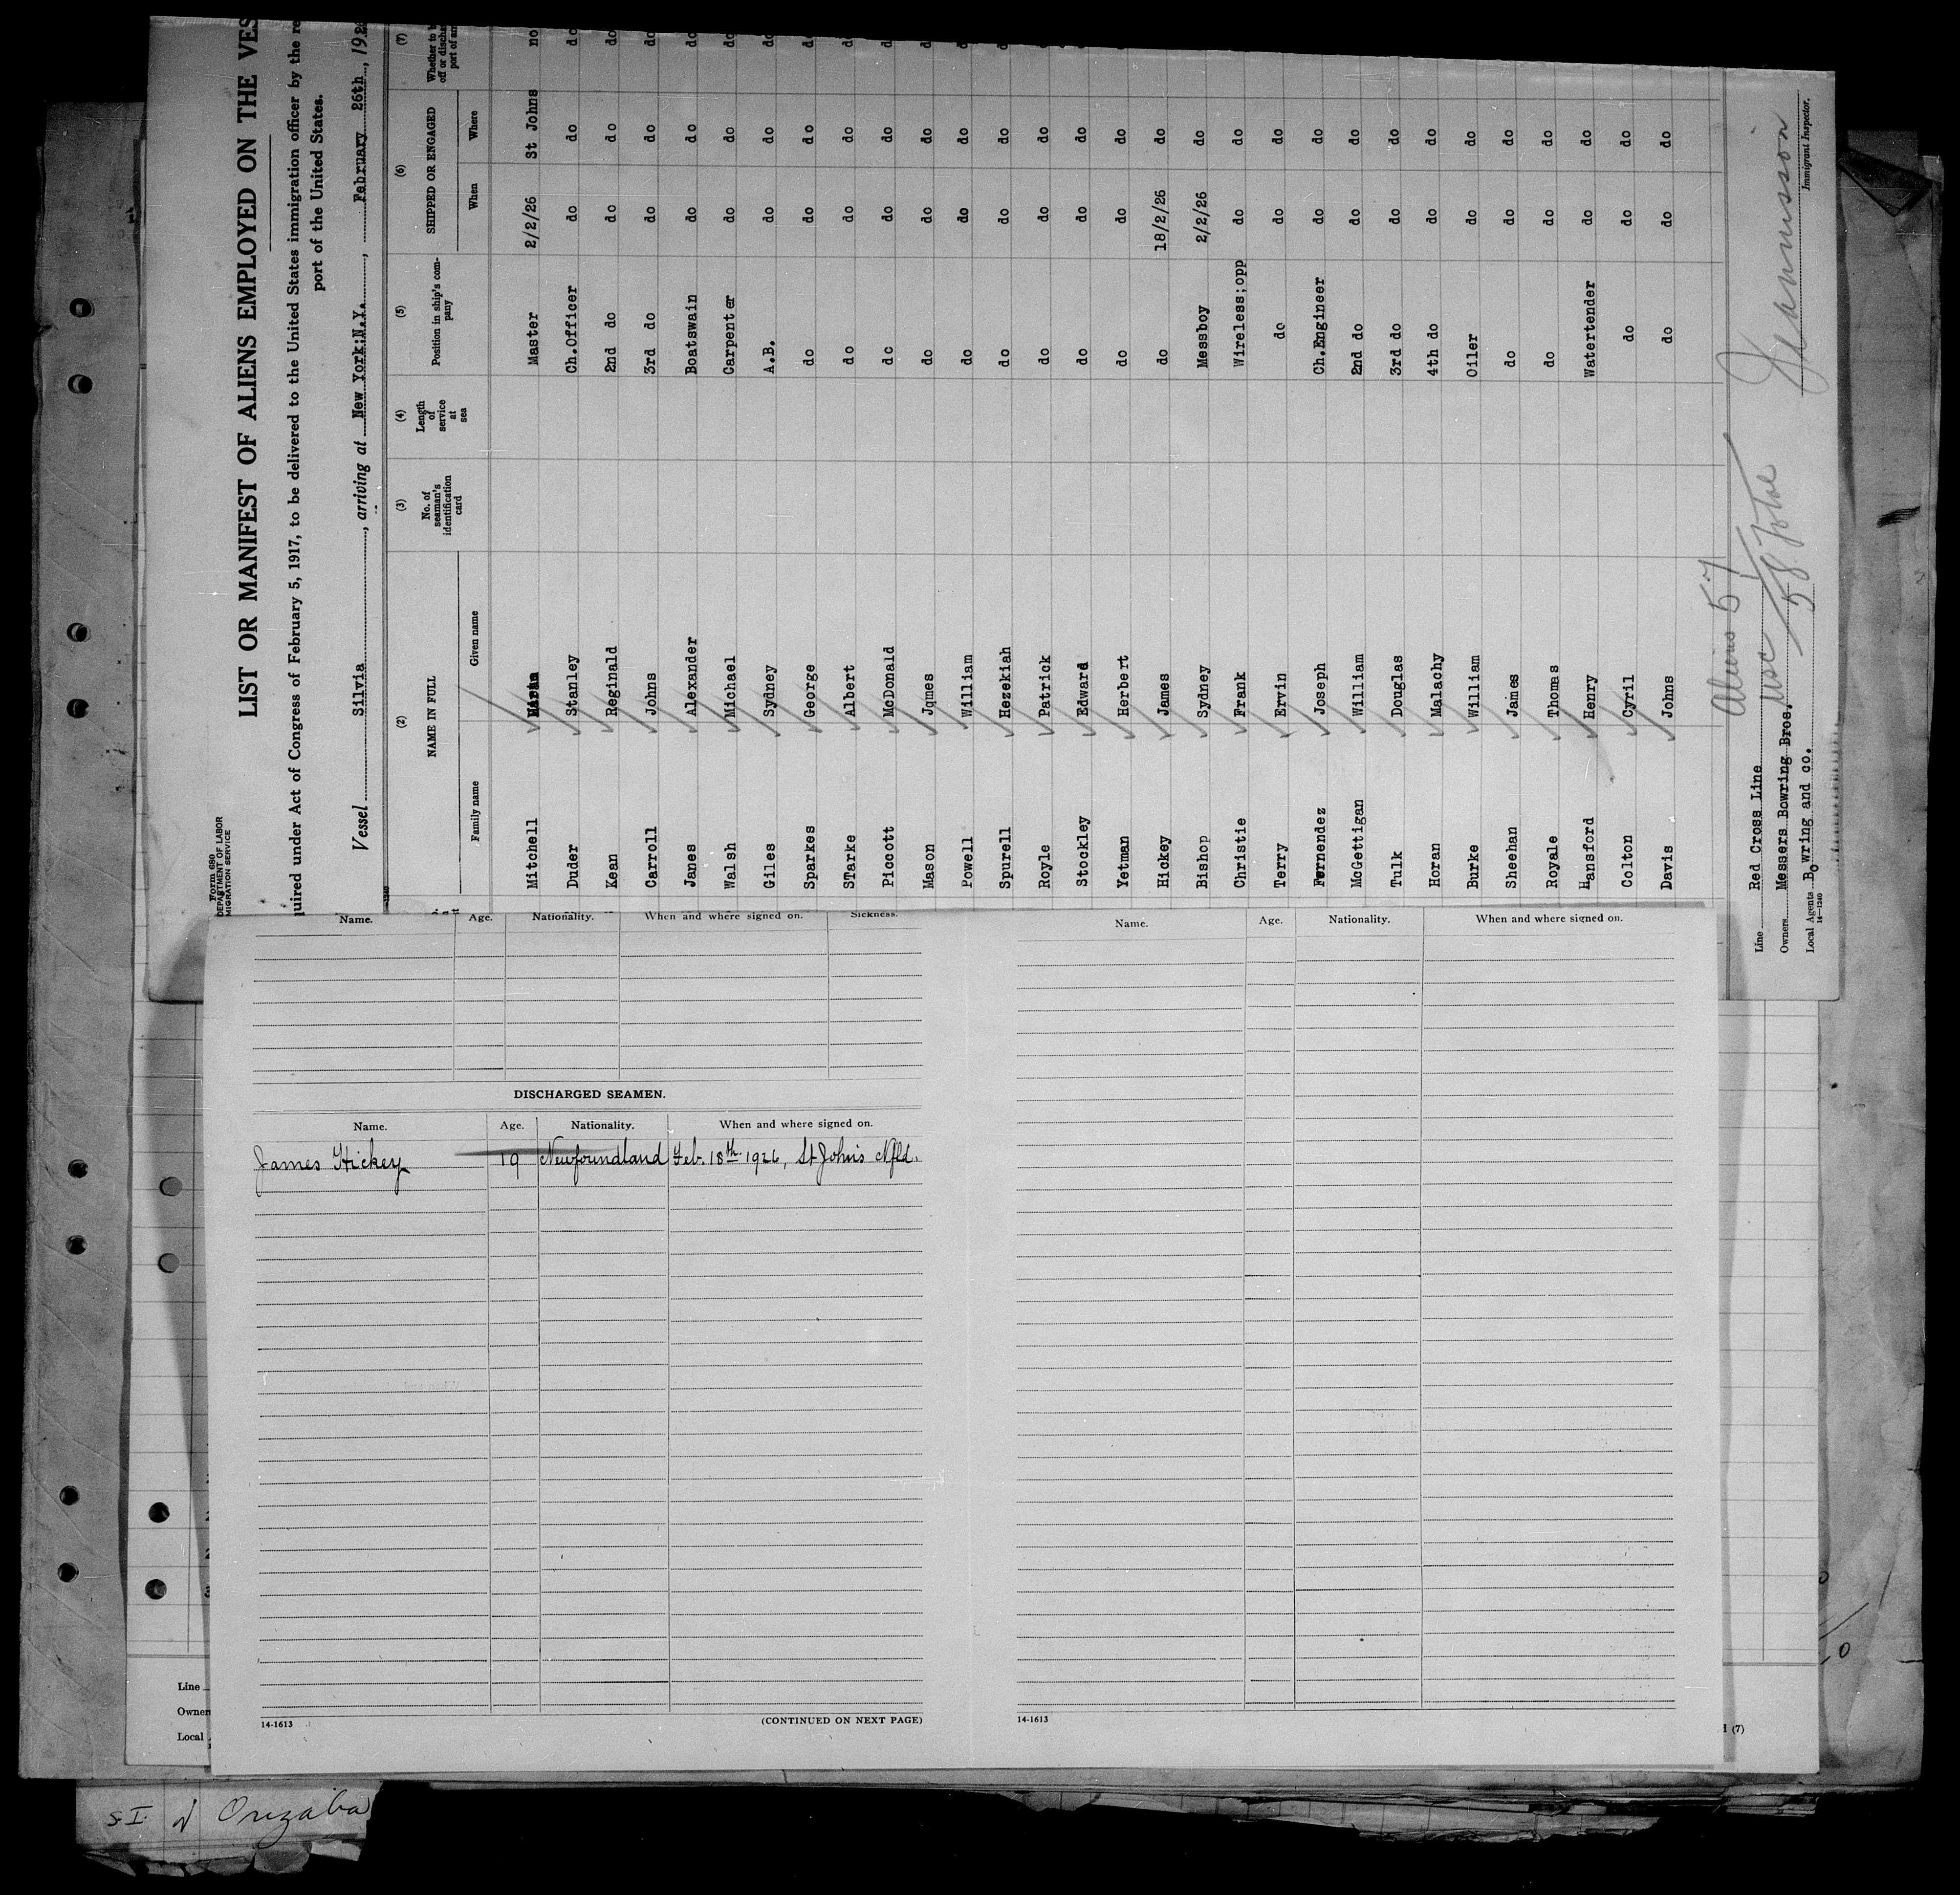 Form 680
DEPARTMENT OF LABOR
MIGRATION SERVICE
LIST OR MANIFEST OF ALIENS EMPLOYED ON THE VES
quired under Act of Congress of February 5, 1917, to be delivered to the United States immigration officer by the re
port of the United States.
Vessel Silvia, arriving at New York;N.Y., February 26th, 192
(2) (3) (4) (5) (6) (7)
NAME IN FULL No. of seaman's identification card Length of service at sea Position in ship's company SHIPPED OR ENGAGED Whether to b off or dischar port of ar
Family name Given name When Where
Mitchell Master 2/2/26 St Johns no
Duder Stanley Ch.Officer do do do
Kean Reginald 2nd do do do do
Carroll Johns 3rd do do do do
Janes Alexander Boatswain do do do
Walsh Michael Carpenter do do do
Giles Sydney A.B. do do do
Sparkes George do do do do
STarke Albert do do do d
Piccott McDonald dc do do d
Mason Jques do do do d
Powell William do do do d
Spurell Hezekiah do do do d
Royle Patrick do do do d
Stockley Edward do do do d
Yetman Herbert do do do
Hickey James do 18/2/26 do
Bishop Sydney Messboy 2/2/26 do
Christie Frank Wireless;opp do do
Terry Ervin do do do
Fernendez Joseph Ch.Engineer do do
McGettigan William 2nd do do do
Tulk Douglas 3rd do do do
Horan Malachy 4th do do do
Burke William Oiler do do
Sheehan James do do do
Royale Thomas do do do
Hansford Henry Watertender do do
Colton Cyril do do do
Davis Johns do do do
Aliens 57
USC 1
58 Total
Line Red Cross Line
Owners Messers Bowring Bros.
Local Agents Bowring and co.
14-1240
Immigrant Inspector.
Name. Age. Nationality. When and where signed on. Sickness.
DISCHARGED SEAMEN.
Name. Age. Nationality. When and where signed on.
James Hickey 19 Newfoundland Feb. 18th 1926, St Johns Nfld.
14-1613 (CONTINUED ON NEXT PAGE)
Name. Age. Nationality. When and where signed on.
14-1613
Line
Owner
Local
(7)
SI of Orizaba